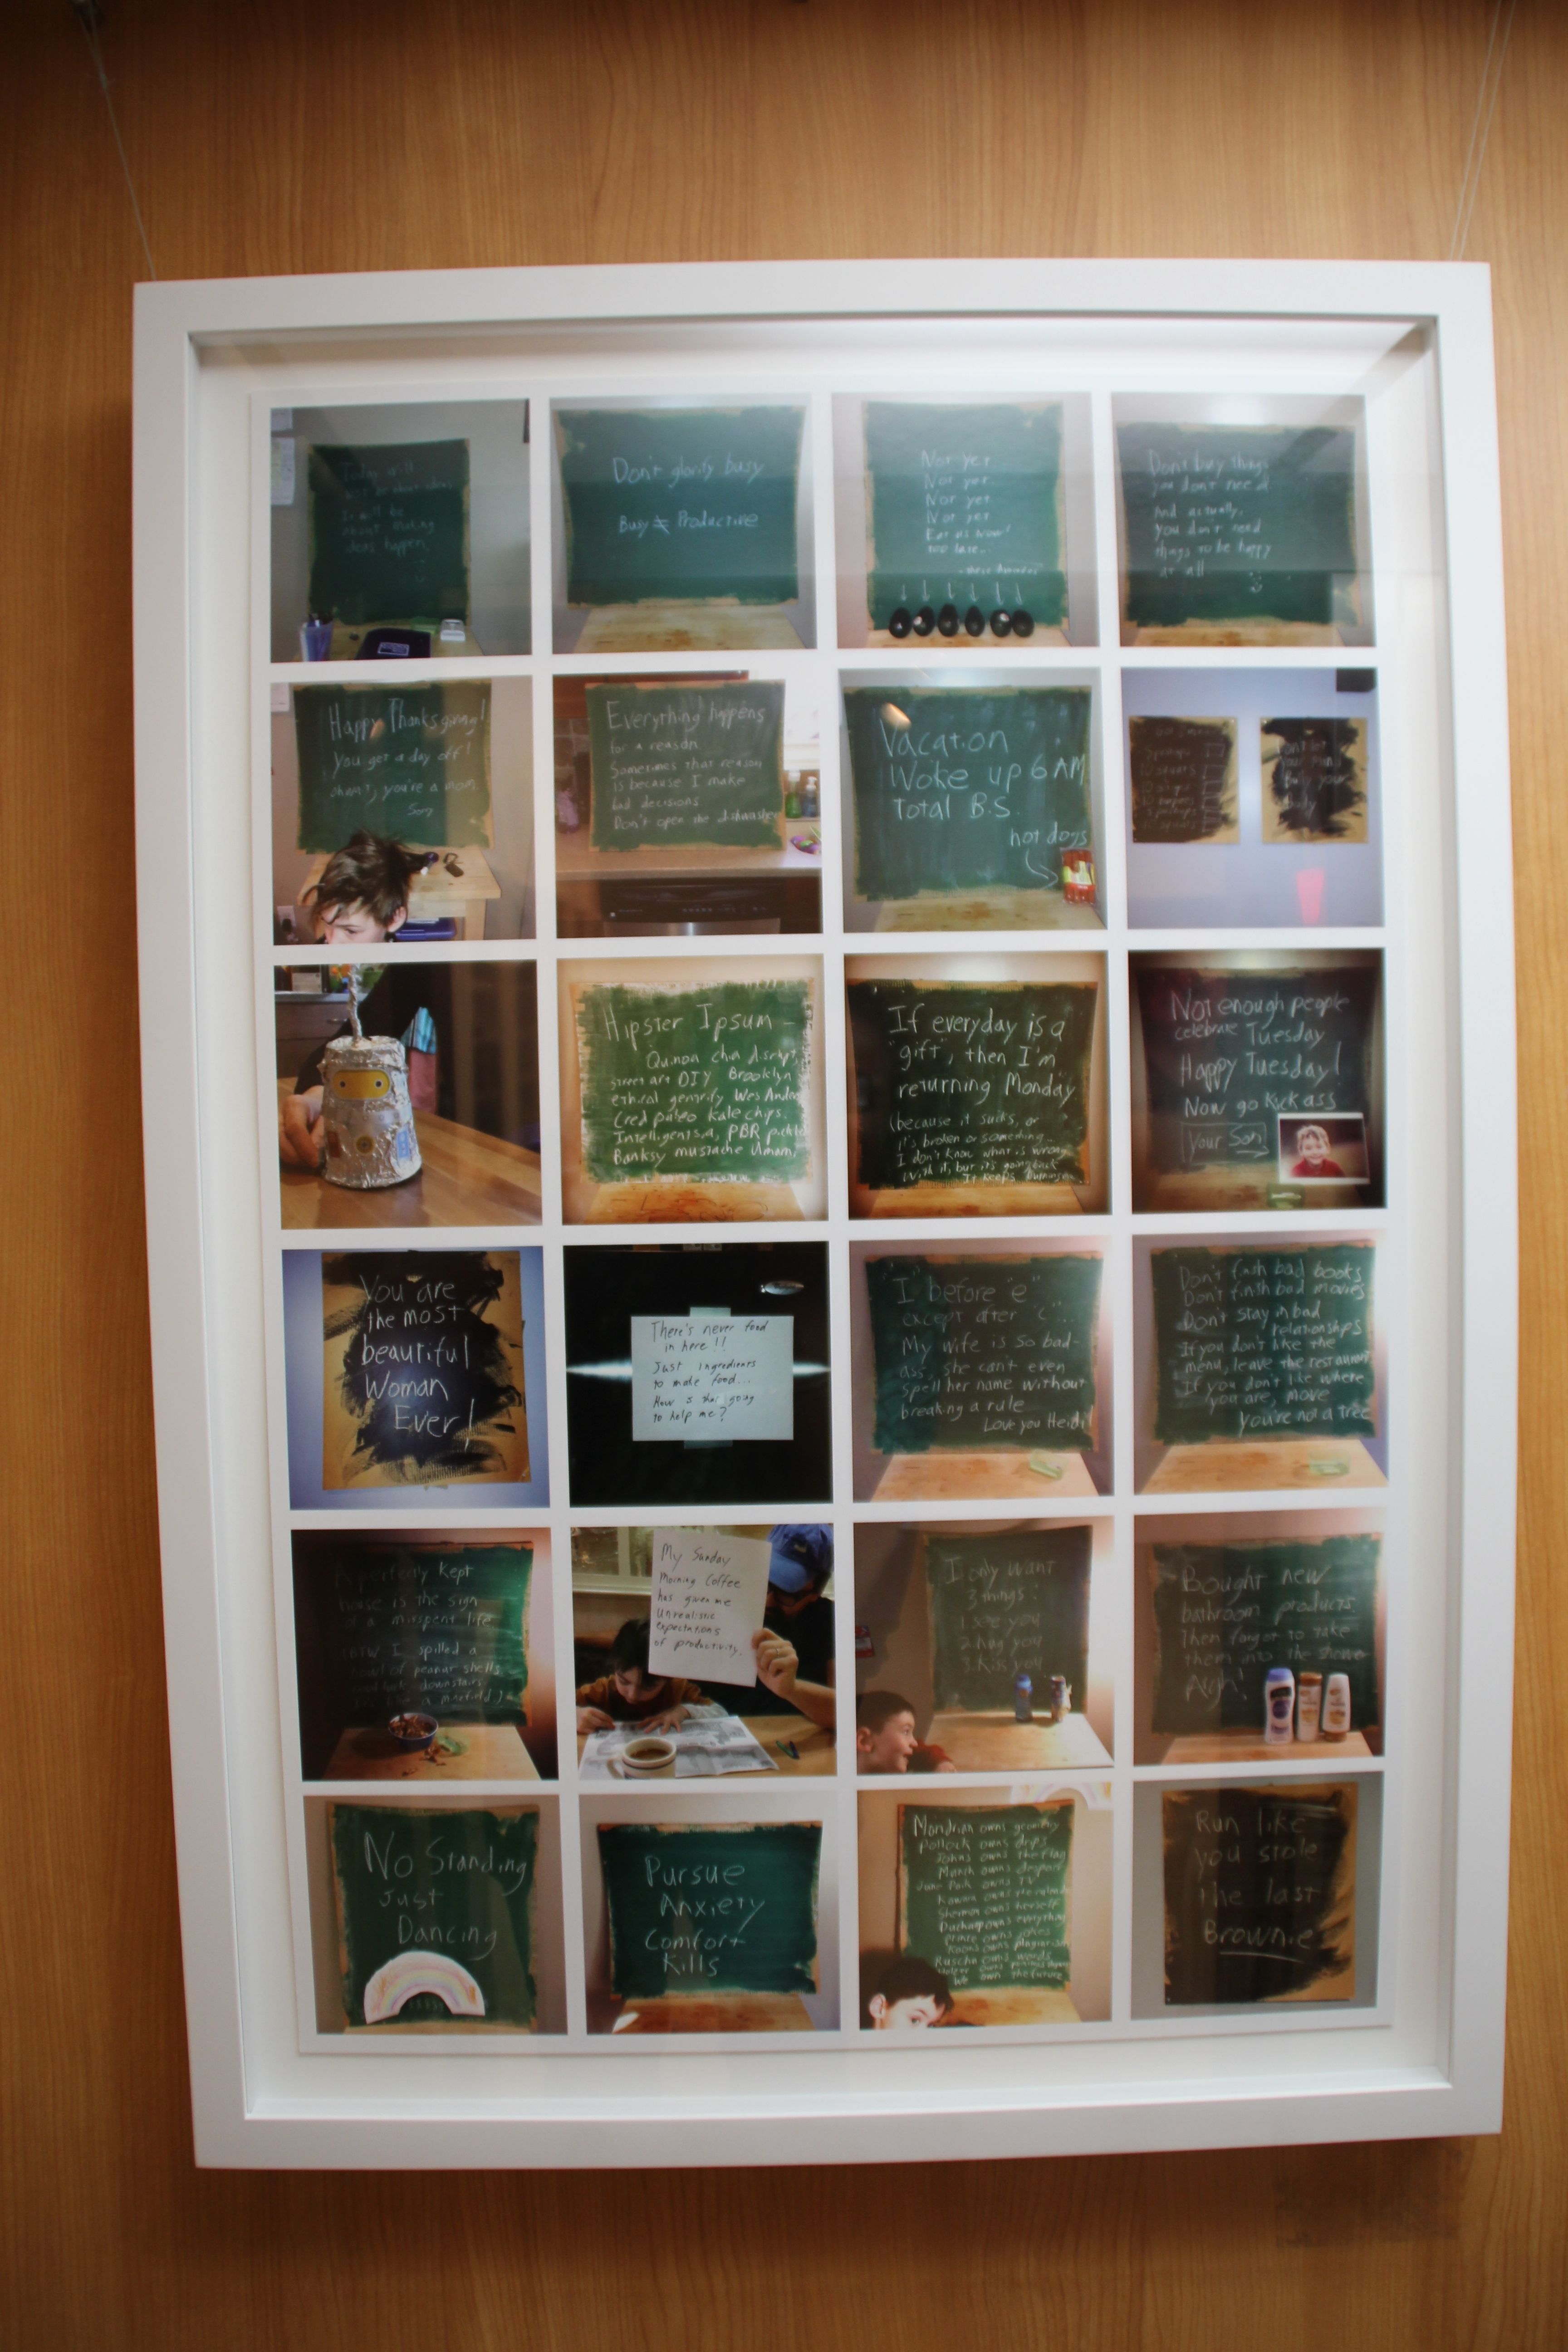 Today will
not be about ideas
It will be
about making
ideas happen.
Don't glorify busy
Busy ≠ Productive
Not yet
Not yet.
Not yet.
Not yet
Eat us now!
too late.
Don't buy things
you don't need.
And actually,
you don't need
things to be happy
at all
Happy Thanksgiving!
You get a day off!
Oh wait, you're a mom
Sorry
Everything happens
for a reason
Sometimes that reason
is because I make
bad decisions
Don't open the dishwasher
Vacation
Woke up 6 AM
Total B.S.
hot dogs
Don't let
your mind
Bully your
body
Hipster Ipsum -
Quinoa chia disrupt,
street art DIY Brooklyn
ethical gentrify Wes Anders
Cred paleo kale chips.
Intelligentsia, PBR pickle
Banksy mustache Umami
If everyday is a
"gift", then I'm
returning Monday
(because it sucks, or
it's broken or something.
I don't know what is wrong
with it, but it's going back
It keeps
Not enough people
celebrate Tuesday
Happy Tuesday!
Now go kick ass
Your Son
You are
the most
beautiful
Woman
Ever!
There's never food
in here!!
Just ingredients
to make food...
How is this going
to help me?
"I" before "e"
except after "c"...
My wife is so bad-
ass, she can't even
spell her name without
breaking a rule
Love you Heidi!
Don't finish bad books
Don't finish bad movies
Don't stay in bad
relationships
If you don't like the
menu, leave the restaurant
If you don't like where
you are, move
you're not a tree
A perfectly kept
house is the sign
of a misspent life
(BTW I spilled a
bowl of peanut shells
downstairs.
like a minefield)
My Sunday
Morning Coffee
has given me
Unrealistic
expectations
of productivity.
I only want
3 things:
1. see you
2. hug you
3. kiss you
Bought new
bathroom products.
Then forgot to take
them into the shower
Argh!
No Standing
Just
Dancing
Pursue
Anxiety
Comfort
Kills
Mondrian owns geometry
Pollock owns drips
Johns owns the flag
Munch owns despair
June Paik owns TV
Kawara owns the calendar
Sherman owns herself
Duchamp owns everything
Prince owns jokes
Koons owns
Ruscha owns words
owns
We own the future
Run like
you stole
the last
Brownie